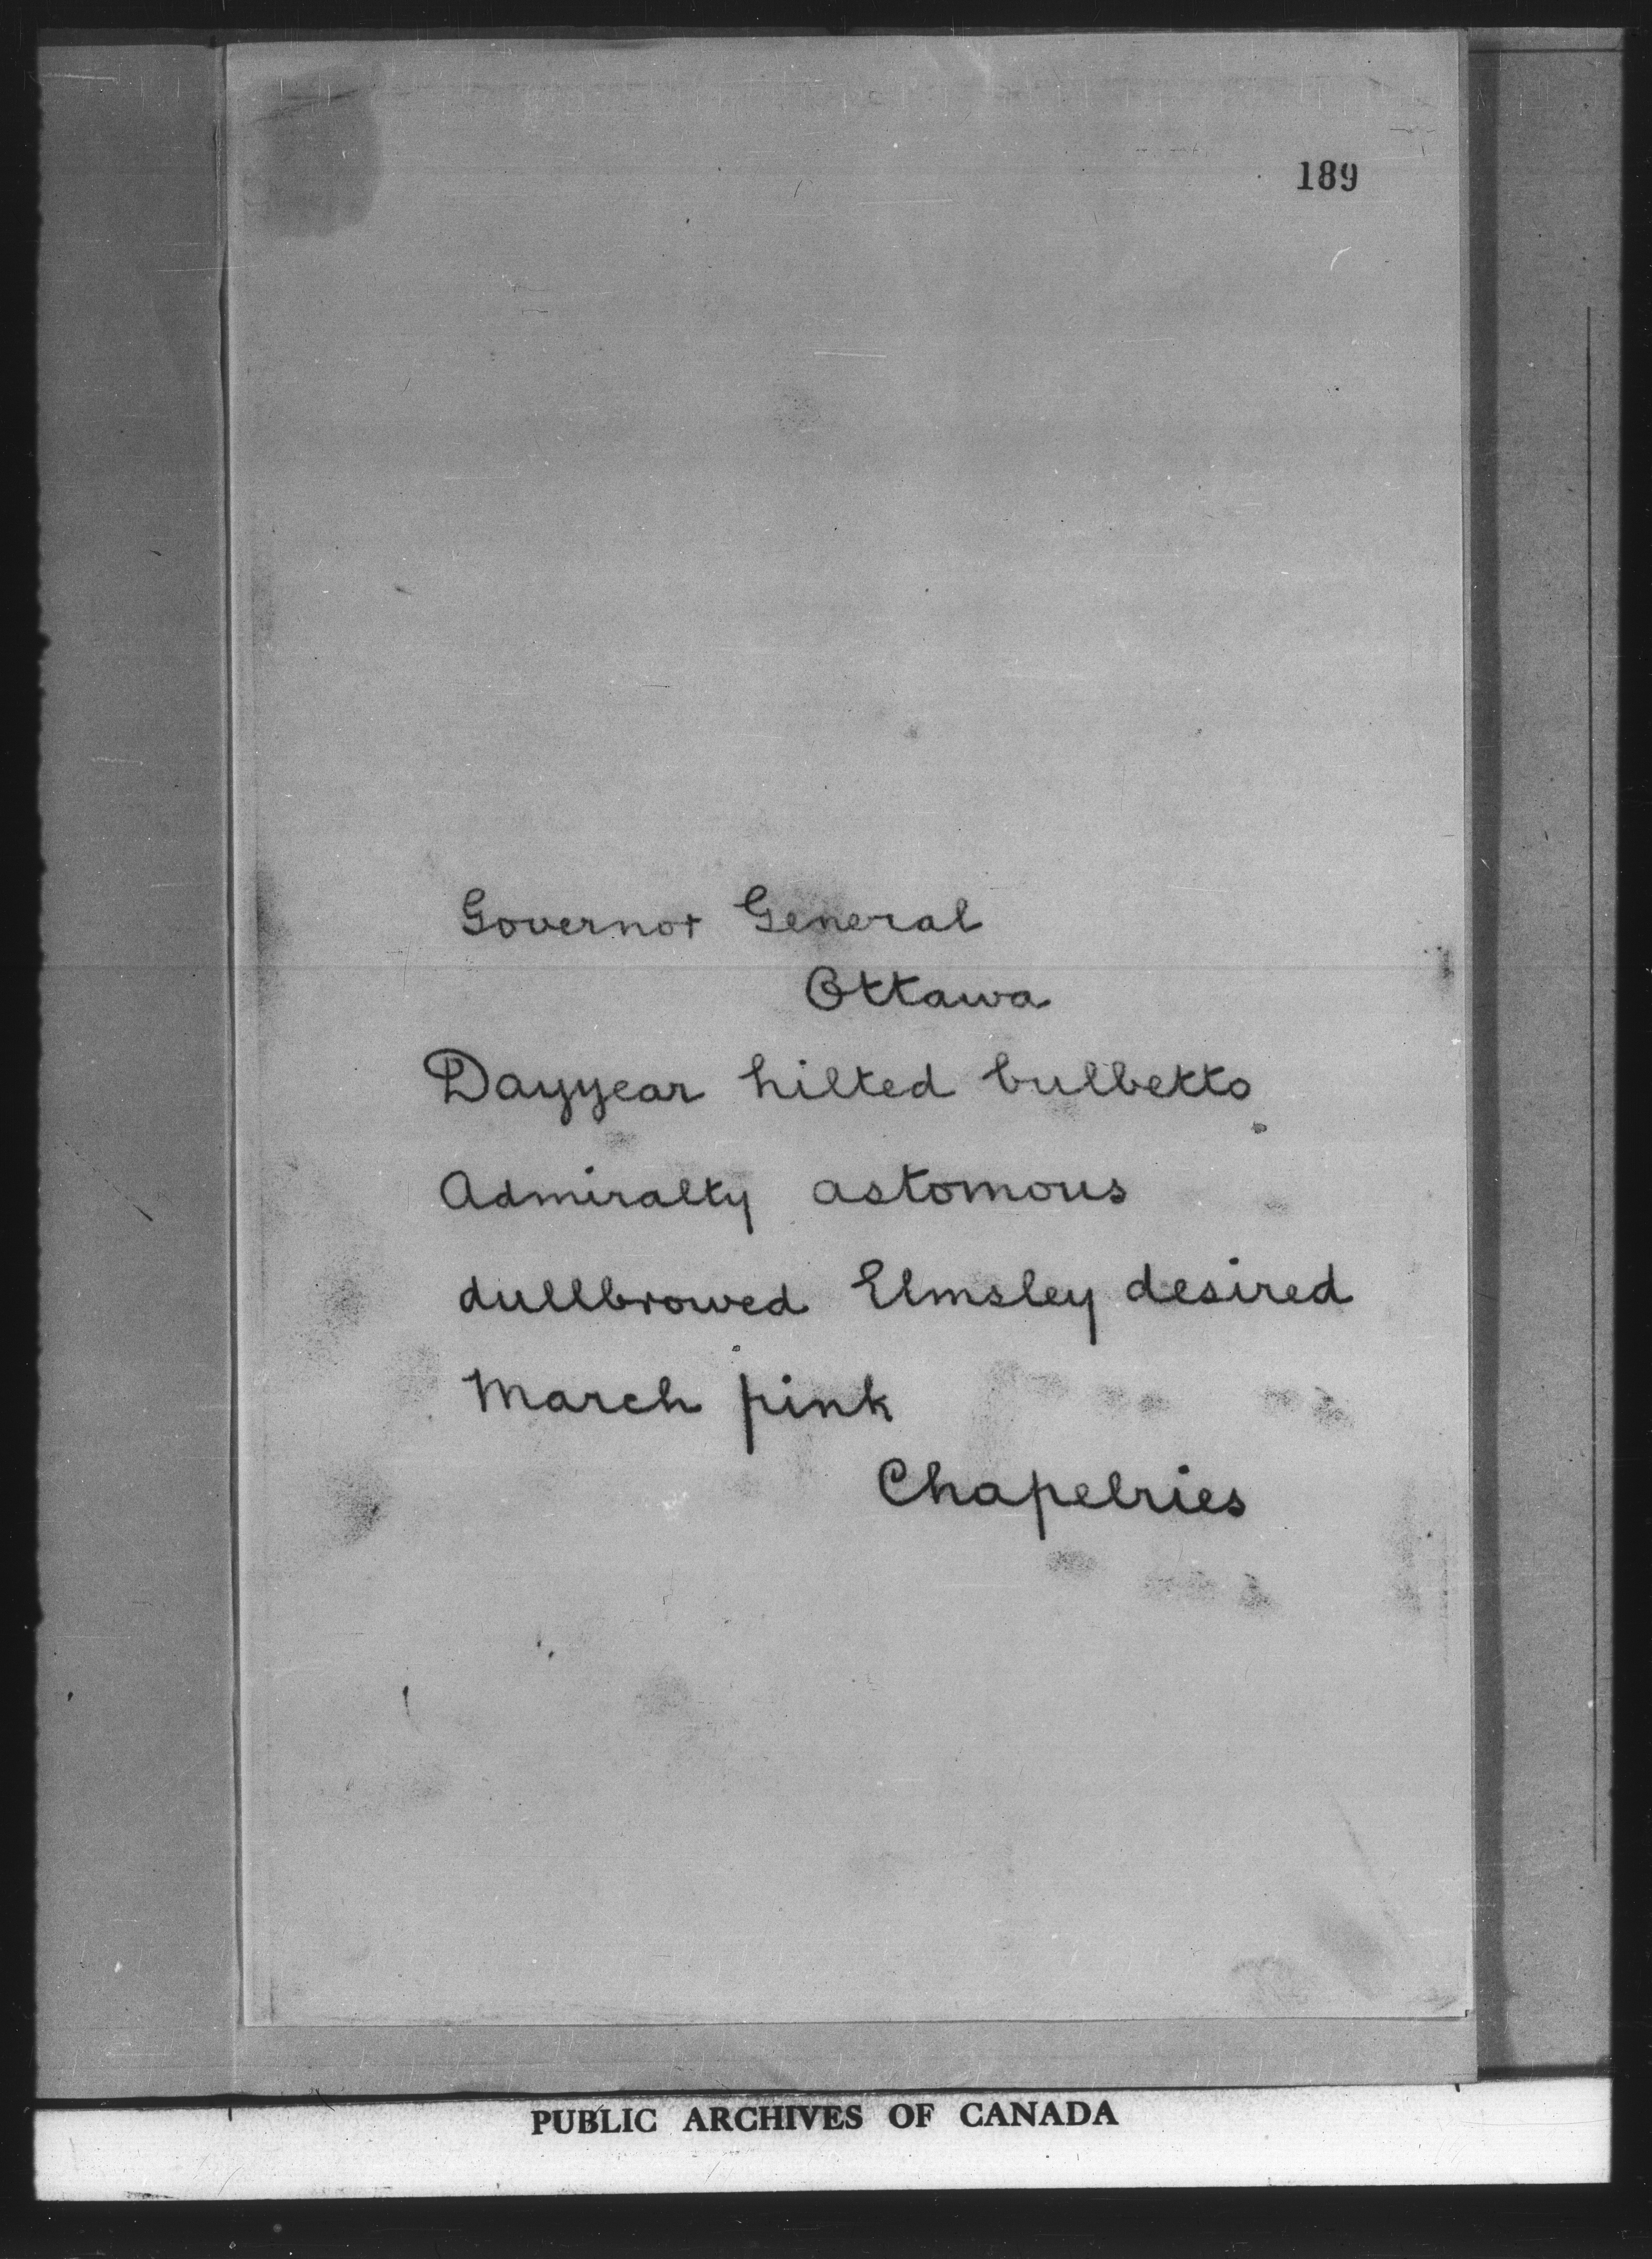 189
Governor General
Ottawa
Dayyear hilted bulbetto
Admiralty astomous
dullbrowed Elmsley desired
March pink
Chapelries
PUBLIC ARCHIVES OF CANADA